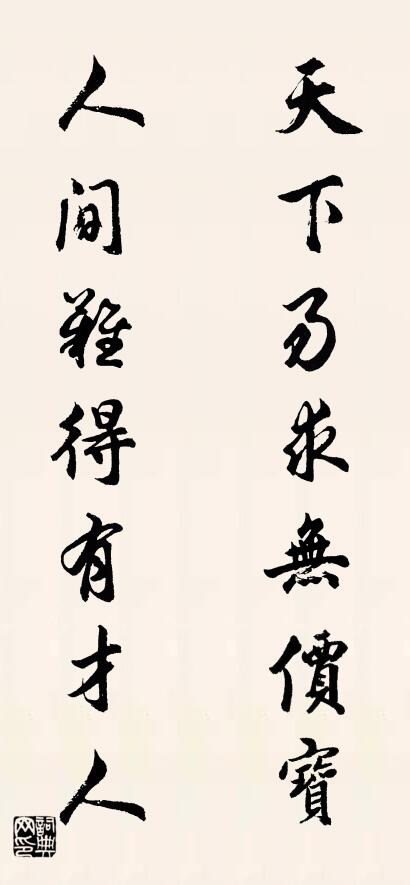 天下易求無價寶
人間難得有才人
詞典网印